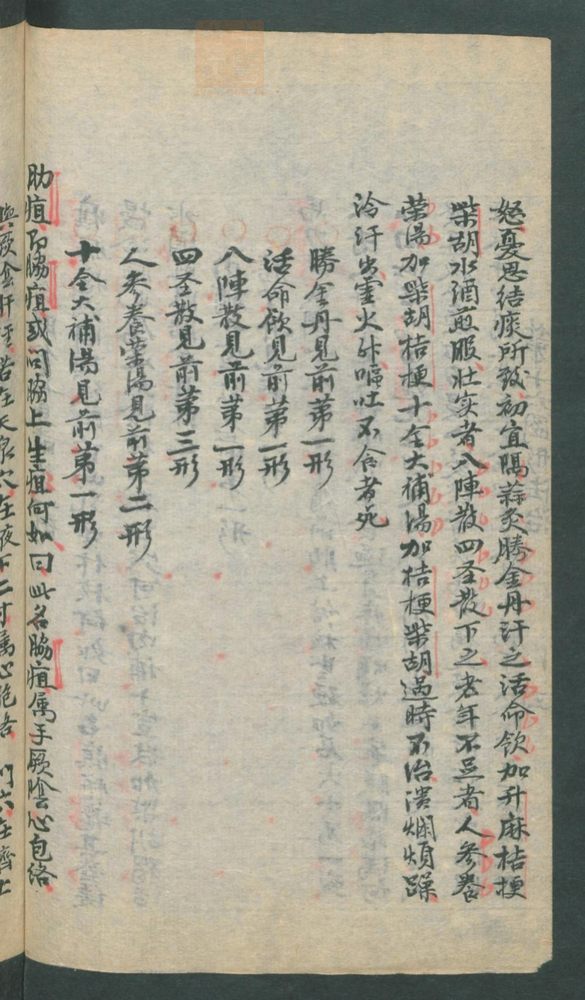 怒憂思結痰所致初宜隔蒜灸勝金丹汗之活命飲加升麻桔梗
柴胡水酒煎服壮实者八陣散四圣散下之老年不足者人参养
荣湯加柴胡桔梗十全大補湯加桔梗柴胡過時不治潰爛煩躁
冷汗出虛火升嘔吐不食者死
勝金丹見前第一形
活命飲見前第一形
八陣散見前第一形
四圣散見前第三形
人参養荣湯見前第二形
十全大補湯見前第一形
肋疽即脇疽或问脇上生疽何如曰此名脇疽属手厥陰心包络
與厥陰肝至若在天泉穴在夜下二寸属心胞各